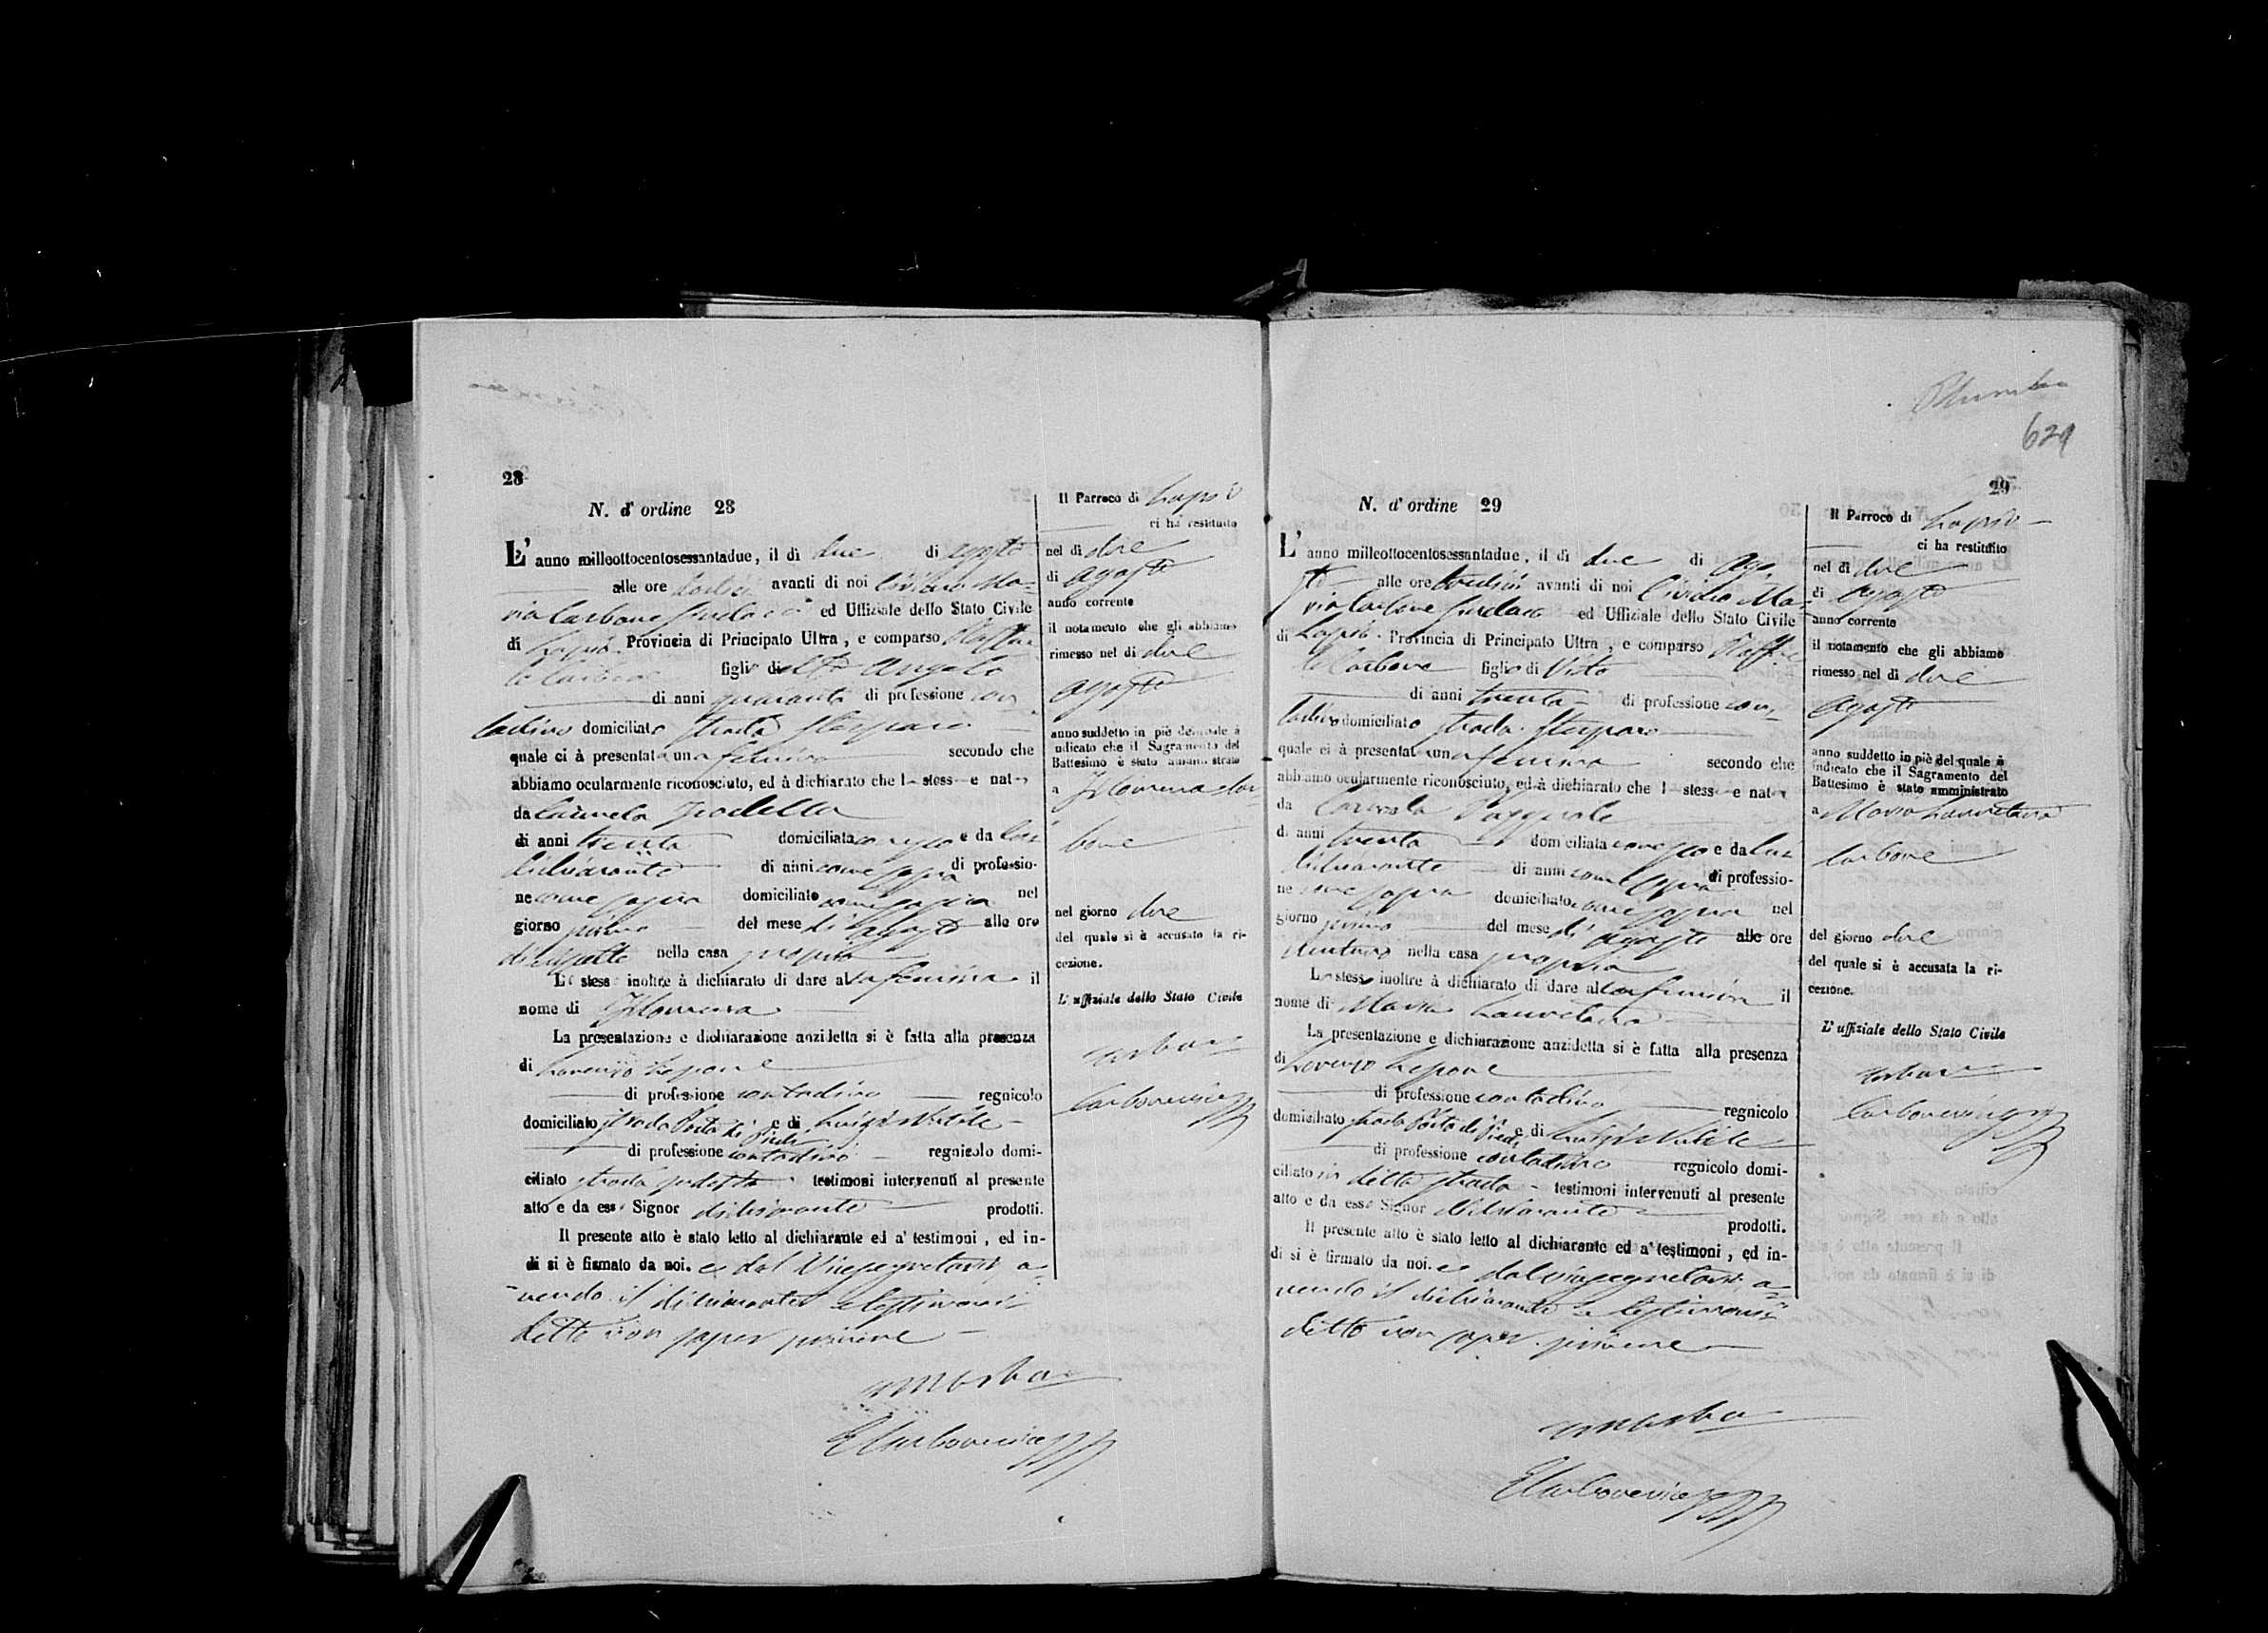 28
N. d' ordine 28
L' anno milleottocentosessantadue, il dì due di agosto
alle ore dodici avanti di noi Civitano Ma-
ria Carbone Sindaco ed Uffiziale dello Stato Civile
di Lapio Provincia di Principato Ultra, e comparso Raffae
le Carbone figlio di Angelo
di anni quaranta di professione con
tadino domiciliato strada
quale ci à presentata una femina secondo che
abbiamo ocularmente riconosciuto, ed à dichiarato che l stess e nat
da Carmela
di anni trenta domiciliata e da lui
dichiarante di anni come sopra di professio-
ne come sopra domiciliato come sopra nel
giorno primo del mese di agosto alle ore
diciasette nella casa propria
L stess inoltre à dichiarato di dare alla femina il
nome di Filomena
La presentazione e dichiarazione anzidetta si è fatta alla presenza
di Lorenzo Lepore
di professione contadino regnicolo
domiciliato strada Porta di Piedi e di Luigi
di professione contadino regnicolo domi-
ciliato strada sudetta testimoni intervenuti al presente
atto e da ess Signor dichiarante prodotti.
Il presente atto è stato letto al dichiarante ed a' testimoni, ed in-
di si è firmato da noi. e dal Vicesegretario, a-
vendo il dichiarante e testimoni
detto non saper scrivere
Il Parroco di Lapio
ci ha restituito
nel dì due
di agosto
anno corrente
il notamento che gli abbiamo
rimesso nel dì due
agosto
anno suddetto in piè del quale à
indicato che il Sagramento del
Battesimo è stato amministrato
a Filomena Car-
bone
nel giorno due
del quale si è accusato la ri-
cezione.
L' uffiziale dello Stato Civile
629
29
N. d' ordine 29
L' anno milleottocentosessantadue, il dì due di ago
sto alle ore tredici avanti di noi Ma-
ria Carbone Sindaco ed Uffiziale dello Stato Civile
di Lapio Provincia di Principato Ultra, e comparso Raffae
le Carbone figlio di Vito
di anni trenta di professione con-
tadino domiciliato strada
quale ci à presentat una femina secondo che
abbiamo ocularmente riconosciuto, ed à dichiarato che l stess e nat
da Pasquale
di anni trenta domiciliata e da lui
dichiarante di anni come sopra di professio-
ne come sopra domiciliato come sopra nel
giorno primo del mese di agosto alle ore
ventuno nella casa propria
L stess inoltre à dichiarato di dare alla femina il
nome di Maria Lauretana
La presentazione e dichiarazione anzidetta si è fatta alla presenza
di Lorenzo Lepore
di professione contadino regnicolo
domiciliato strada Porta di Piedi e di Luigi
di professione contadino regnicolo domi-
ciliato in detta strada testimoni intervenuti al presente
atto e da ess Signor dichiarante prodotti.
Il presente atto è stato letto al dichiarante ed a' testimoni, ed in-
di si è firmato da noi. e dal vicesegretario, a-
vendo il dichiarante e testimoni
detto non saper scrivere
Il Parroco di Lapio
ci ha restituito
nel dì due
di agosto
anno corrente
il notamento che gli abbiamo
rimesso nel dì due
agosto
anno suddetto in piè del quale à
indicato che il Sagramento del
Battesimo è stato amministrato
a Maria Lauretana
Carbone
del giorno due
del quale si è accusata la ri-
cezione.
L' uffiziale dello Stato Civile